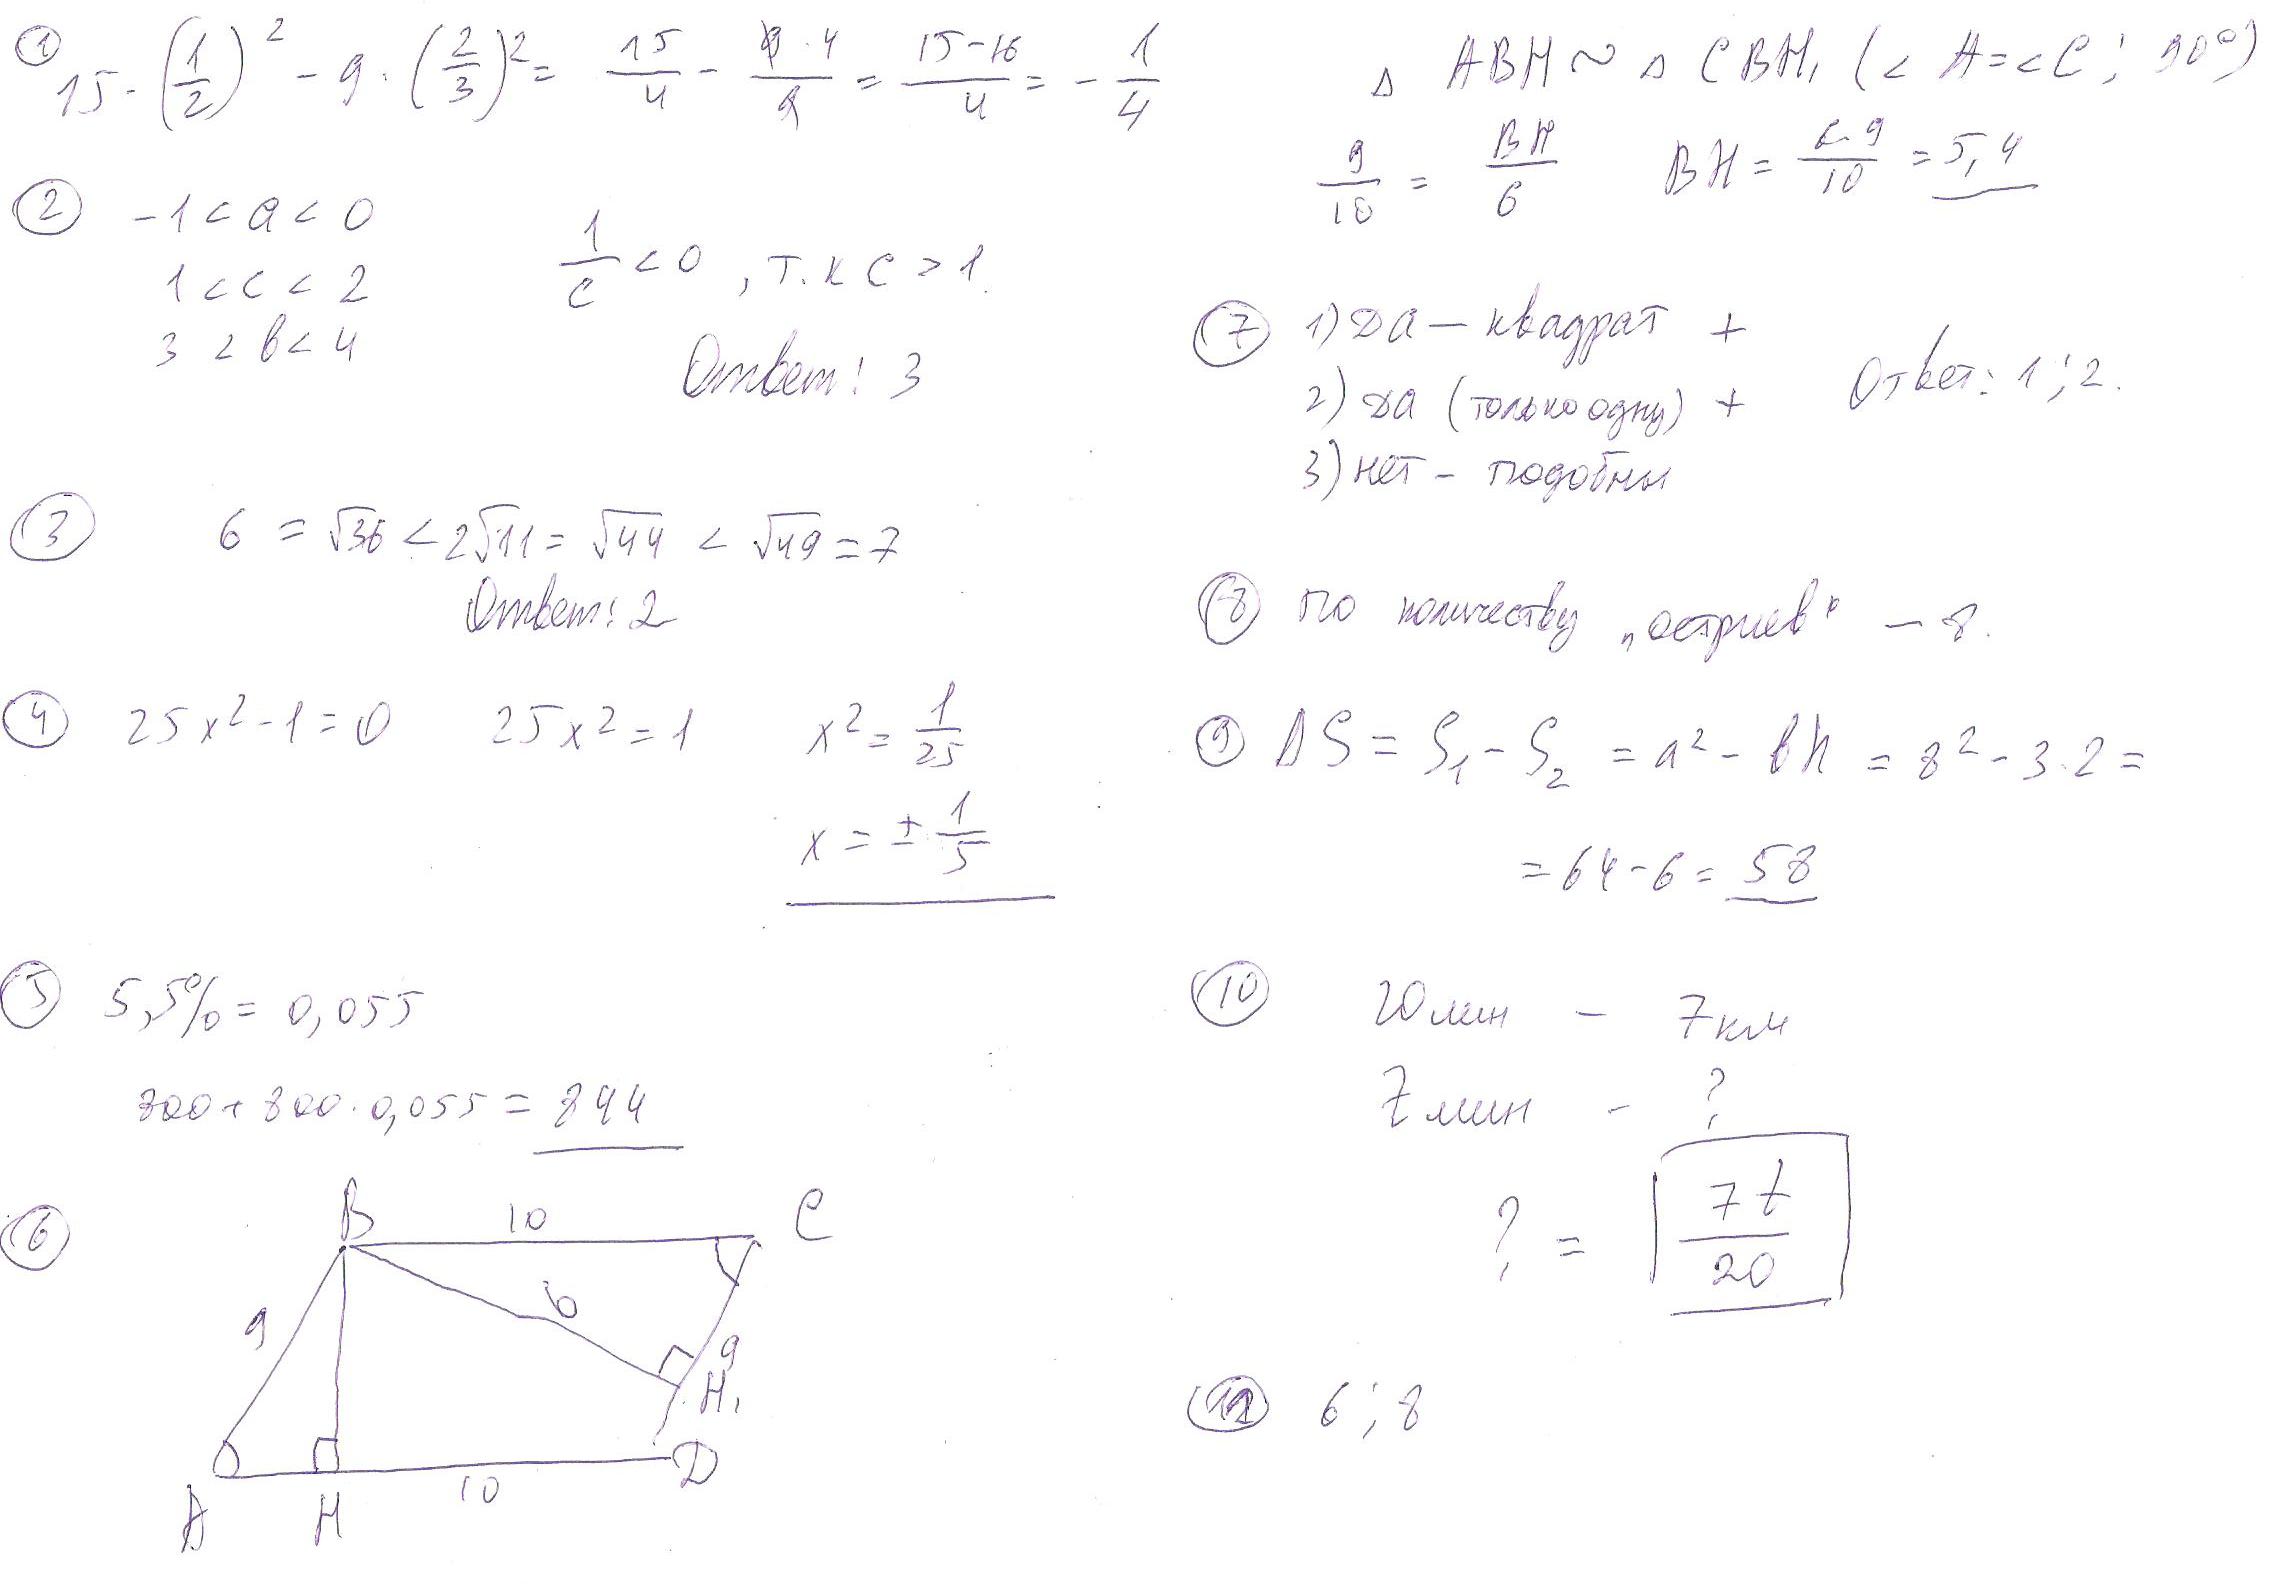 ① 15·(1/2)² - 9·(2/3)² = 15/4 - 9·4/9 = (15-16)/4 = -1/4
② -1 < a < 0
1 < c < 2
3 < b < 4
1/c < 0, т.к c > 1.
Ответ: 3
③ 6 = √36 < 2√11 = √44 < √49 = 7
Ответ: 2
④ 25x² - 1 = 0 25x² = 1 x² = 1/25
x = ± 1/5
⑤ 5,5% = 0,055
800 + 800·0,055 = 844
⑥ B 10 C
9 6
9
H₁
A H 10 D
△ ABH ~ △ CBH₁ (< A = < C; 90°)
9/10 = BH/6 BH = 6·9/10 = 5,4
⑦ 1) Да – квадрат +
2) Да (только одну) +
3) нет – подобны
Ответ: 1; 2.
⑧ по количеству „остриев“ – 8.
⑨ ΔS = S₁ - S₂ = a² - bh = 8² - 3·2 =
= 64 - 6 = 58
⑩ 20 мин – 7 км
t мин – ?
? = 7t/20
⑫ 6; 8